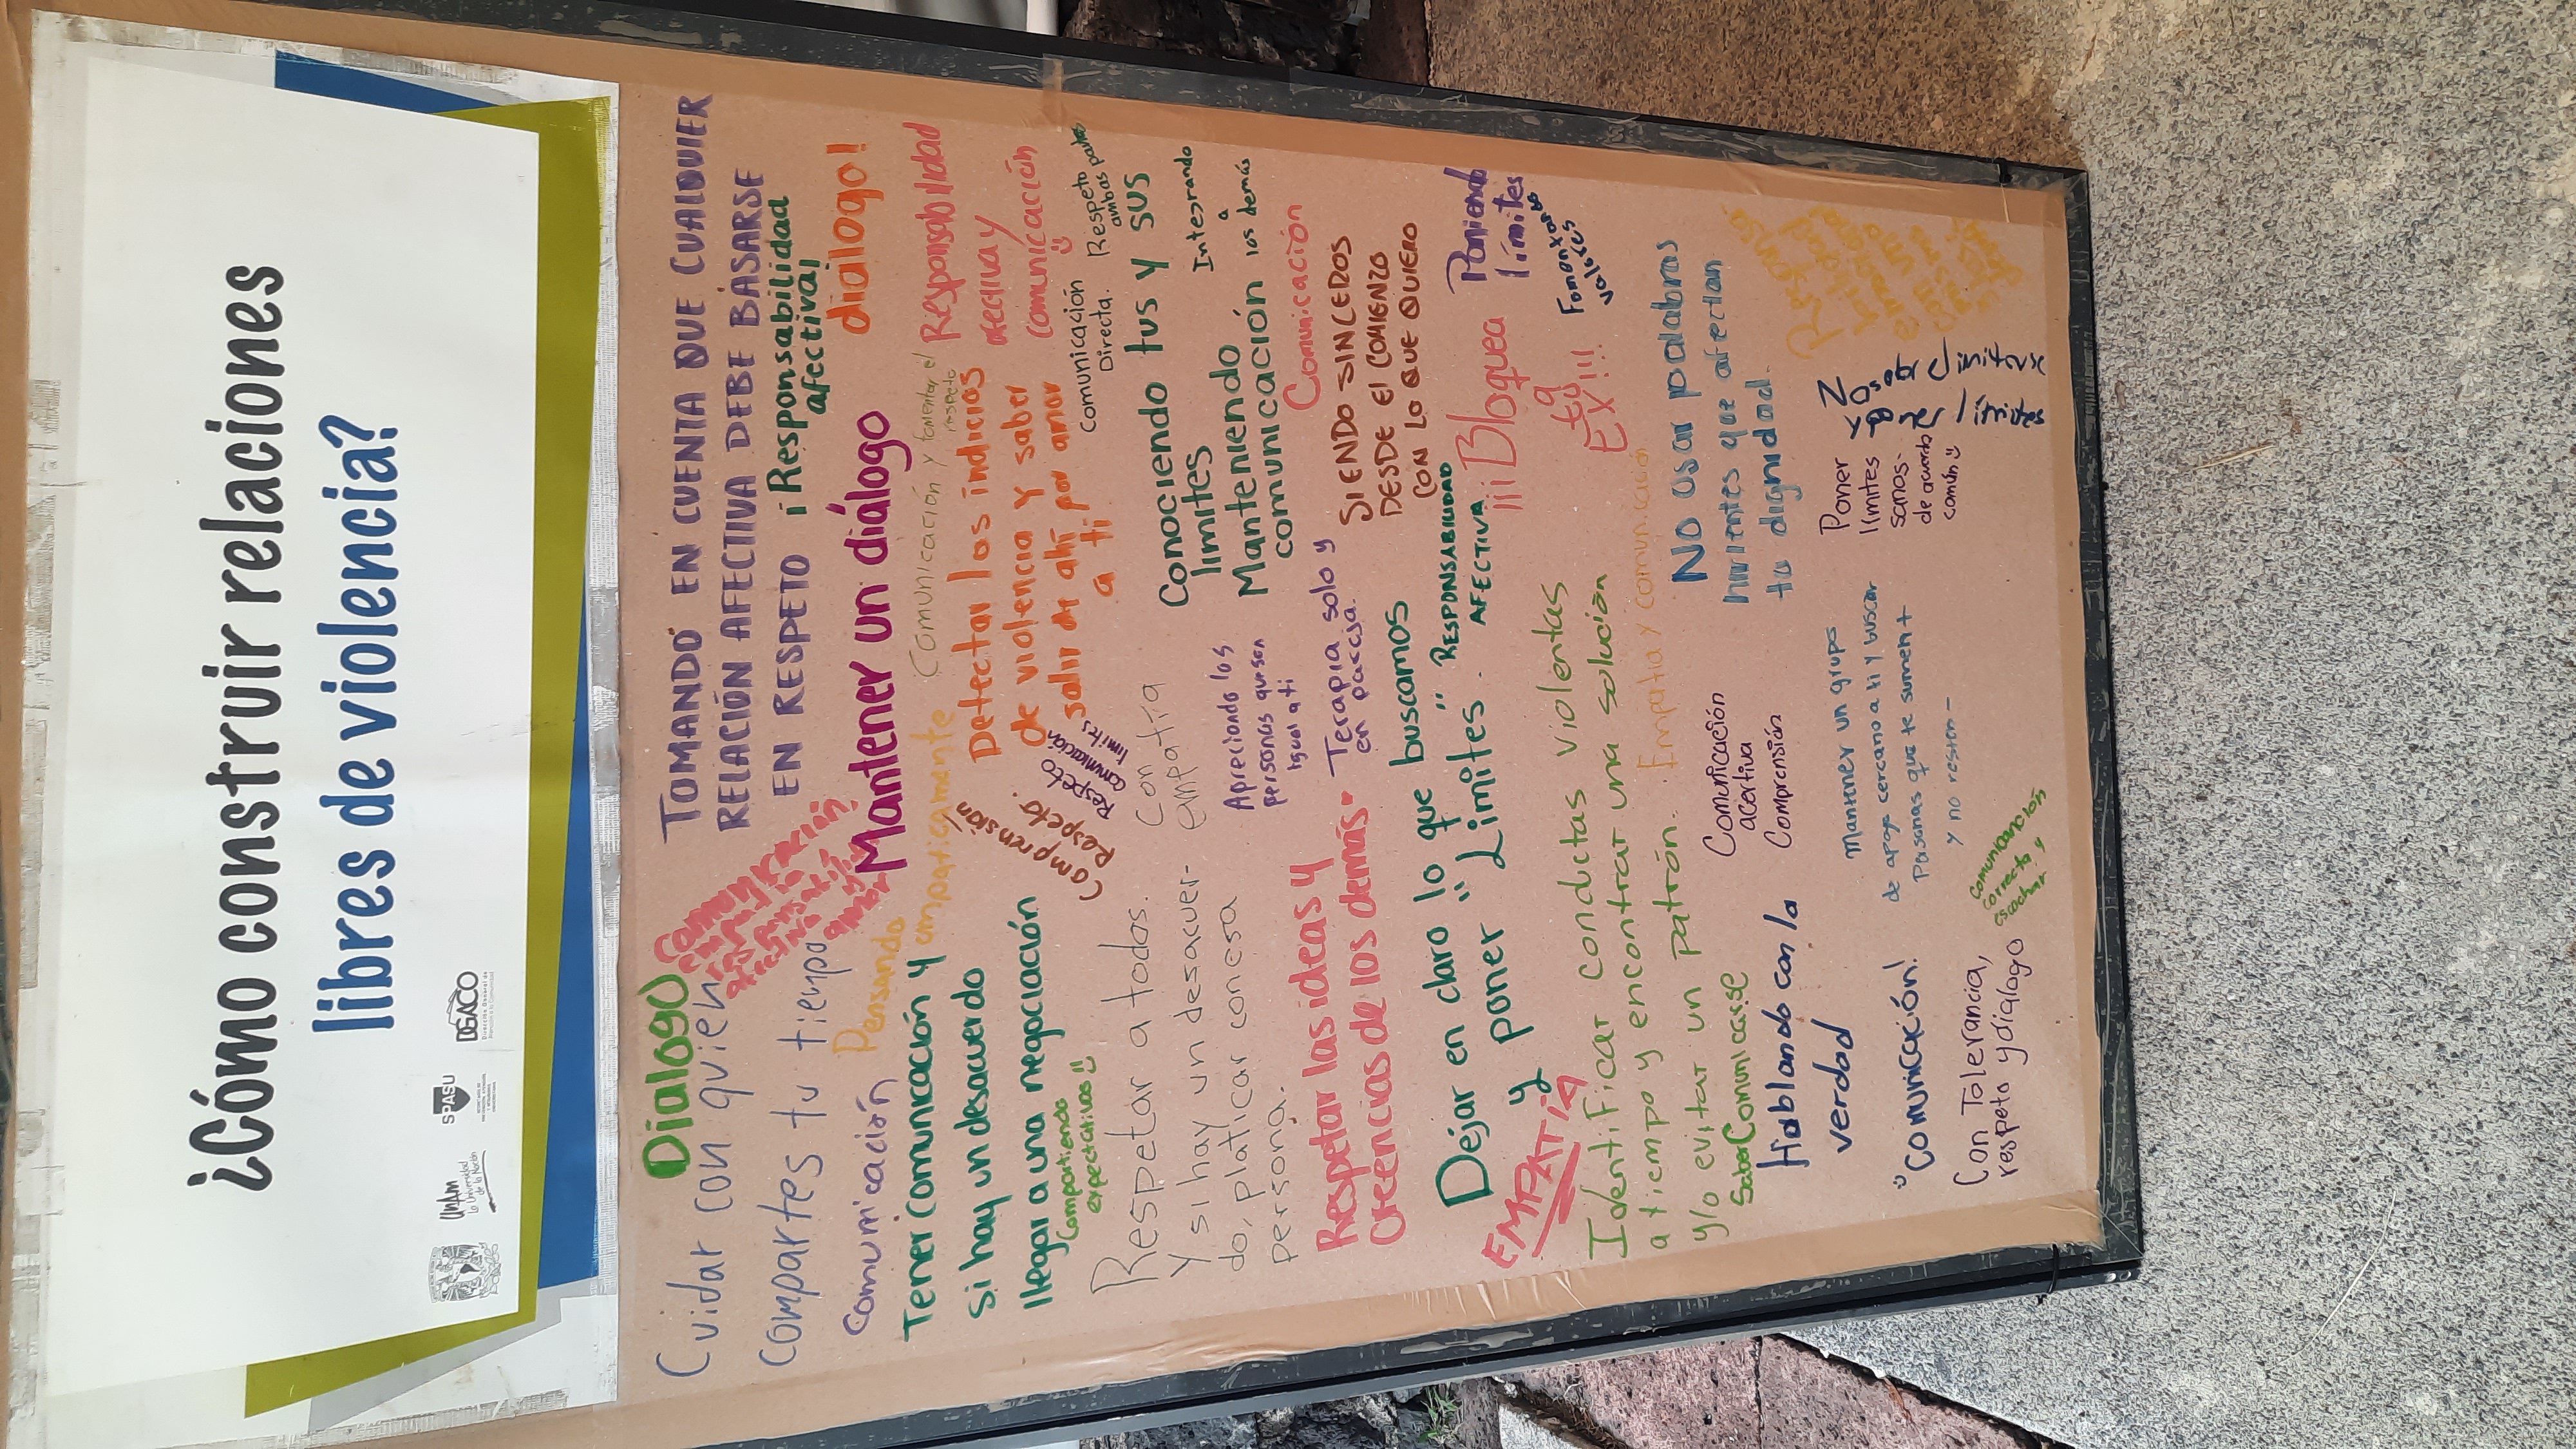 ¿Cómo construir relaciones
libres de violencia?
UNAM
La Universidad
de la Nación
SPASU
DGACO
Dirección General de
Atención a la Comunidad
Dialogo
Cuidar con quien
compartes tu tiempo
Comunicación
empatía
TOMANDO EN CUENTA QUE CUALQUIER
RELACIÓN AFECTIVA DEBE BASARSE
EN RESPETO
¡Responsabilidad
afectiva!
Mantener un diálogo
diálogo!
Comunicación
Pensando
empáticamente
Comunicación y fomentar el
respeto
Responsabilidad
afectiva y
comunicación
Tener comunicación y
si hay un desacuerdo
llegar a una negociación
Compartiendo
expectativas
Comprensión
Respeto.
Respeto
comunicación
limites
Detectar los indicios
de violencia y saber
salir de ahí por amor
a ti
comunicación
Directa.
Respeto
ambas partes
Respetar a todos.
Y si hay un desacuer-
do, platicar con esa
persona.
Con
empatía
Conociendo tus y sus
limites
Manteniendo
comunicación
Integrando
a
los demás
Apreciando los
personas que son
igual a ti
Comunicación
Respetar las ideas y
Creencias de los demás.
Terapia solo y
en pareja.
SIENDO SINCEROS
DESDE El COMIENZO
CON LO QUE QUIERO
Dejar en claro lo que buscamos
y poner "Limites".
RESPONSABILIDAD
AFECTIVA
¡¡¡Bloquea
a
tu
EX!!!
Poniendo
límites
Fomentando
valores
EMPATIA
Identificar conductas violentas
a tiempo y encontrar una solución
y/o evitar un patrón.
Empatia y comunicación
Saber Comunicarse
NO usar palabras
hirientes que afectan
tu dignidad.
Hablando con la
verdad
Comunicación
acertiva
Comprensión
Poner
límites
sanos.
de acuerdo
común
limites
"comunicación!
Mantener un grupo
de apoyo cercano a ti y buscar
Pasonas que te sumen +
y no resten -
Con Tolerancia,
respeto y dialogo
comunicación
correcta y
escochar